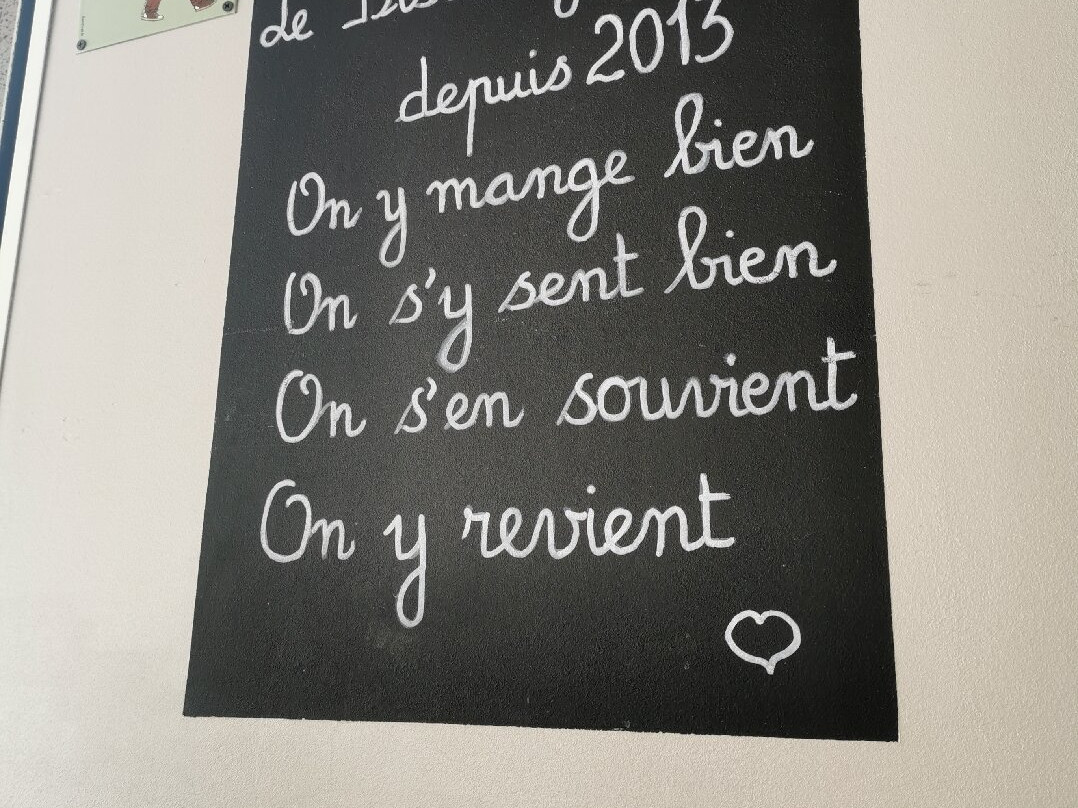 de
depuis 2013
On y mange bien
On s'y sent bien
On s'en souvient
On y revient